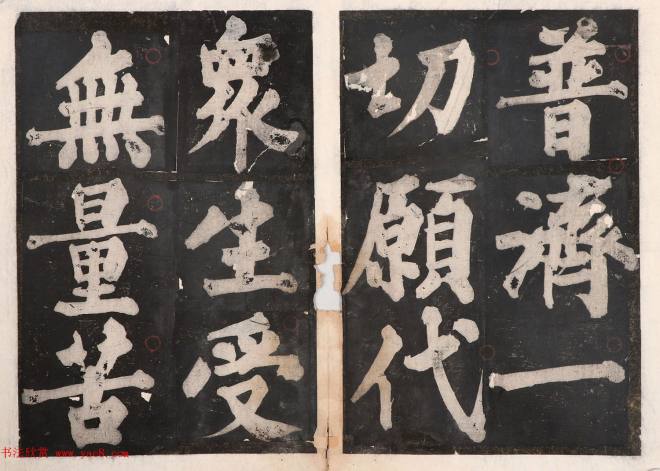 普濟一
切願代
眾生受
無量苦
书法欣赏 www.yac8.com